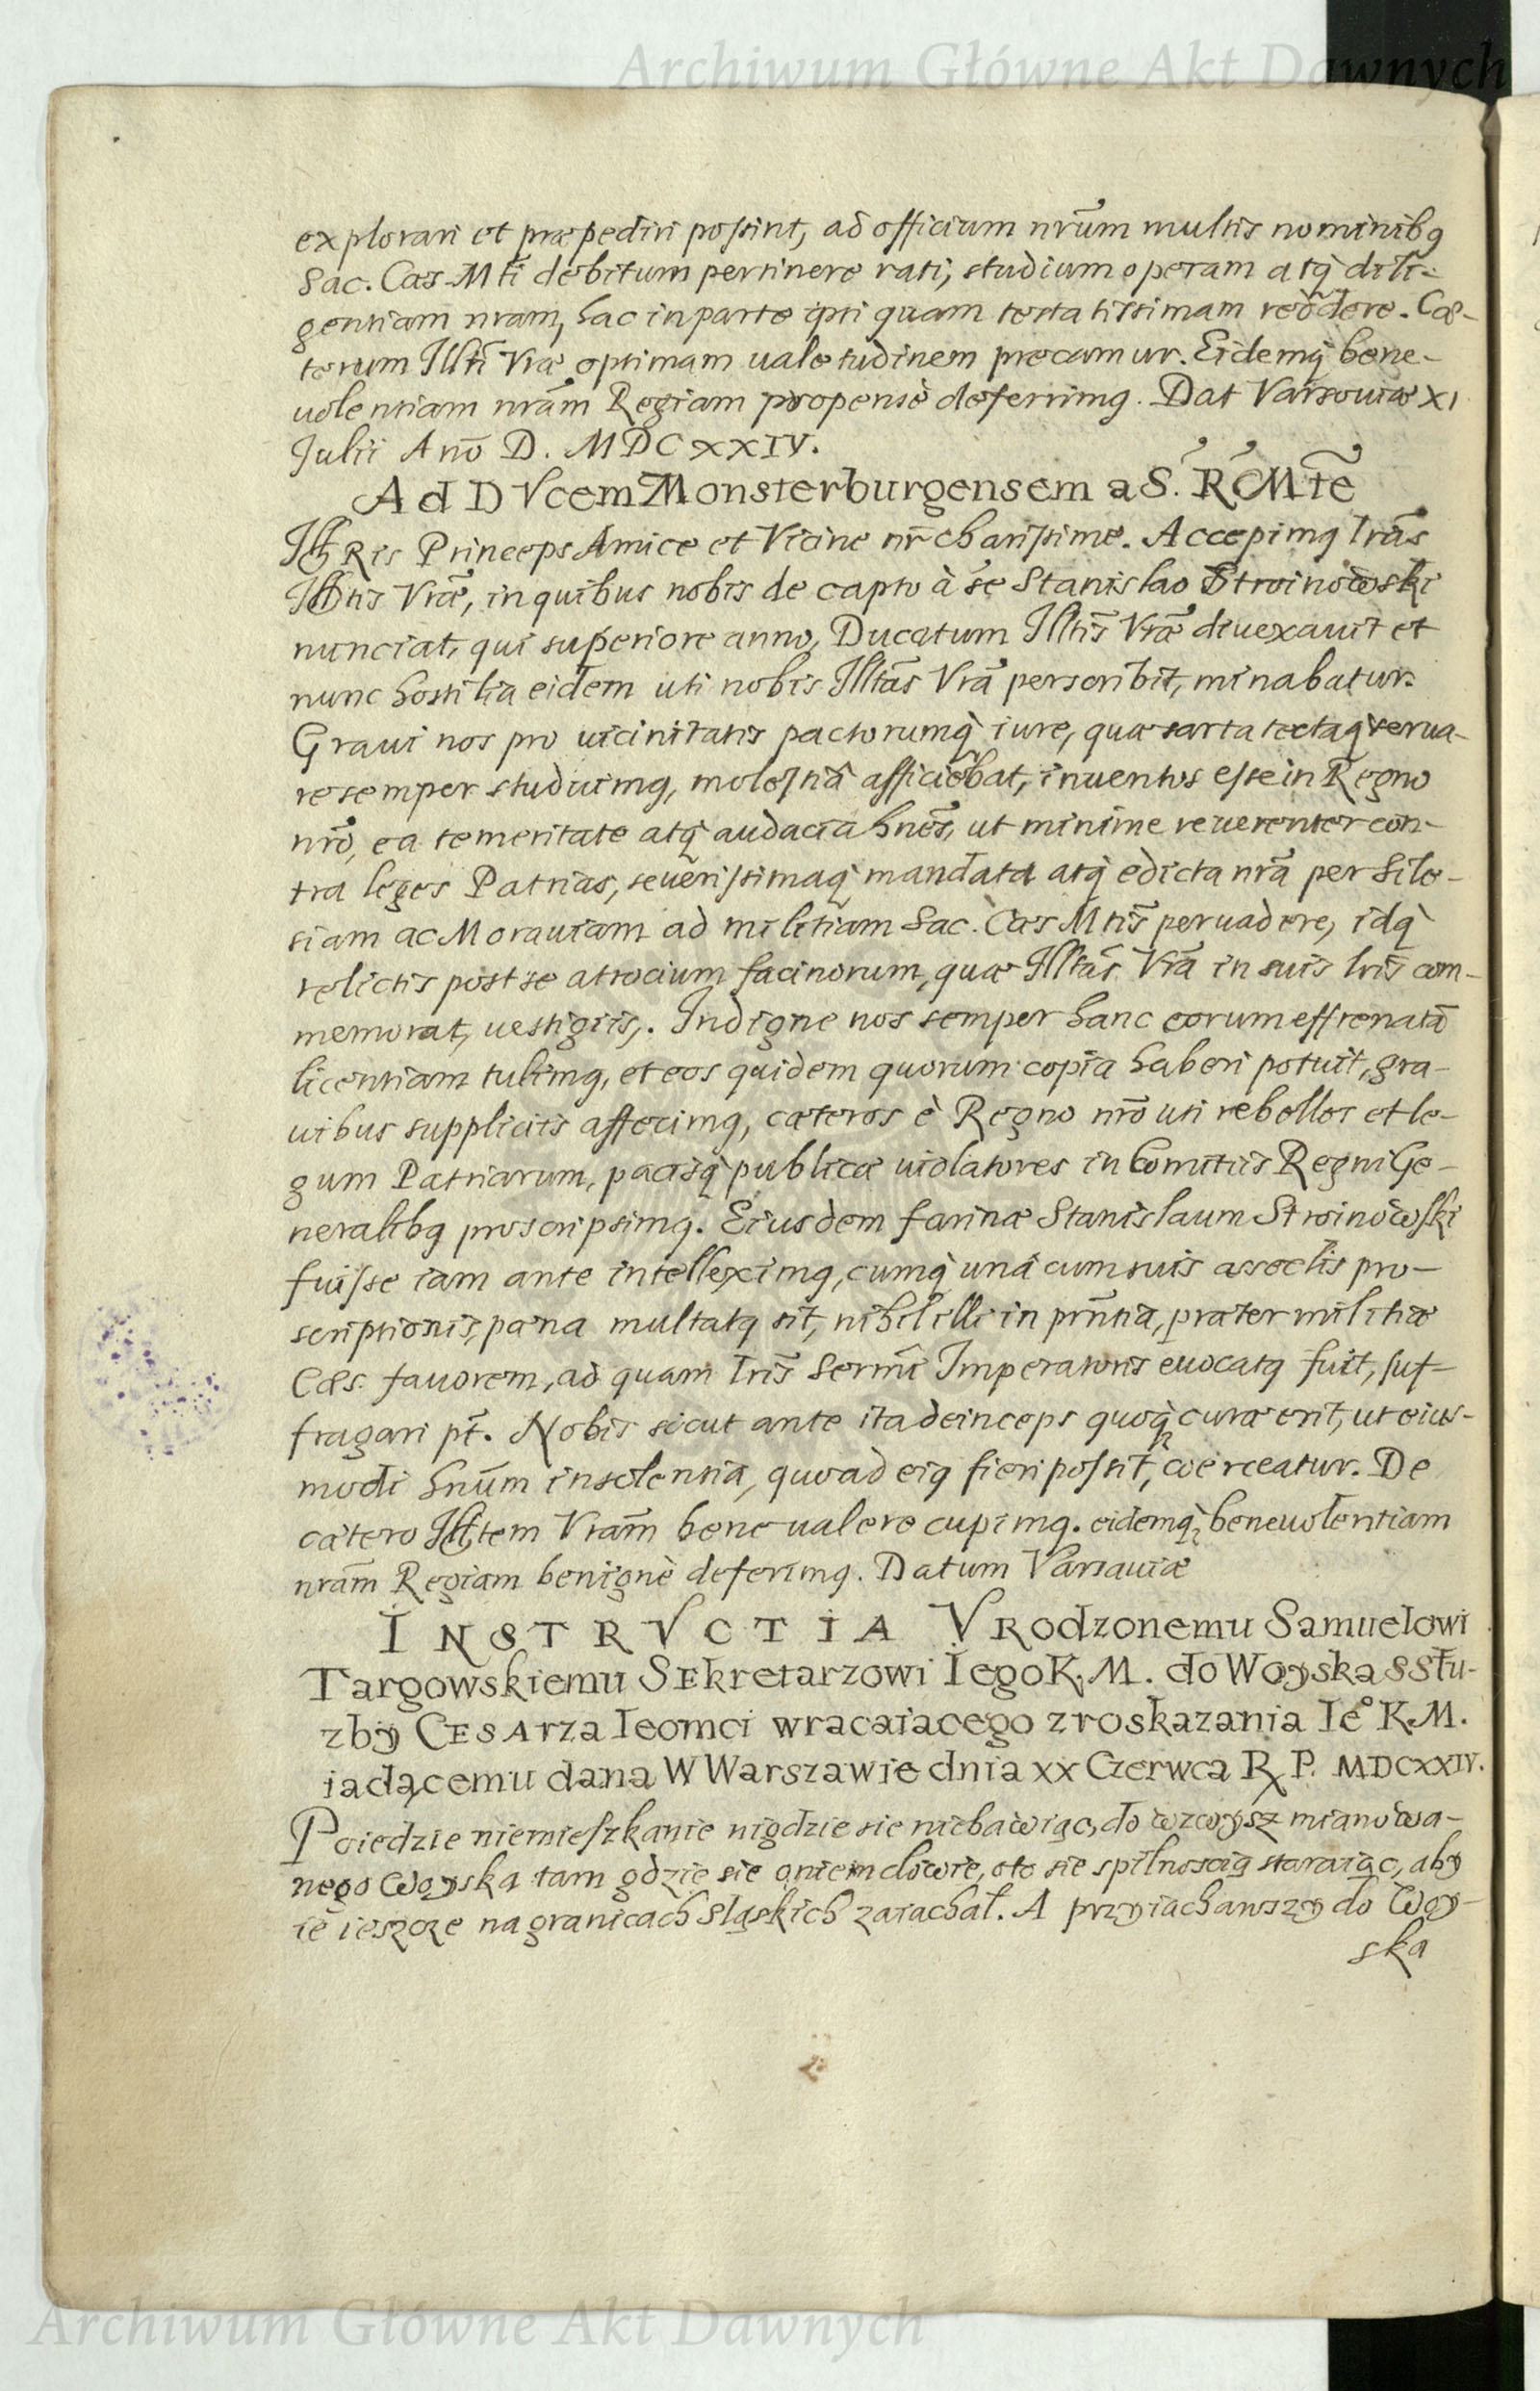 Archiwum Główne Akt Dawnych
explorari et præpediri possint, ad officium nrũm multis nominibq
Sac. Cæs. Mtĩ debitum pertinere rati, studium operam atq̀ dili-
gentiam nram, hac in parte ipsi quam testatissimam reddere. Cæ-
terum Illtĩ Vræ optimam valetudinem precamur. Eidemq̀ bene-
uolentiam nrãm Regiam propensè deferimq. Dat Varsouiæ XI
Julii Anõ D. MDCXXIV.
Ad DVcem Monsterburgensem a S. R. Mtẽ
Illris Princeps Amice et Vicine nr̃ charissime. Accepimq lrãs
Illtis Vræ, in quibus nobis de capto à se Stanislao Stroinowski
nunciat, qui superiore anno, Ducatum Illtis̃ Vræ diuexauit et
nunc hostilia eidem uti nobis Illtãs Vrã perscribit, minabatur.
Graui nos pro uicinitatis pactorumq̀ iure, quæ sarta tectaq̀ serua-
re semper studuimq, molestiâ afficiebat, inuentos esse in Regno
nrõ, ea temeritate atq̀ audacia hnẽs, ut minime reuerenter con-
tra leges Patrias, seuerissimaq̀ mandata atq̀ edicta nrã per Sile-
siam ac Morauiam ad militiam Sac. Cæs Mtis̃ peruadere, idq̀
relictis post se atrocium facinorum, quæ Illtãs Vrã in suis lris̃ com-
memorat, uestigiis,. Indigne nos semper hanc eorum effrenatã
licentiam tulimq, et eos quidem quorum copia haberi potuit, gra-
uibus suppliciis affecimq, cæteros è Regno nrõ uti rebelles et le-
gum Patriarum, pacisq̀ publicæ uiolatores in Comitiis Regni Ge-
neralibq proscripsimq. Eiusdem farinæ Stanislaum Stroinowski
fuisse iam ante intelleximq, cumq̀ unà cum suis asseclis pro-
scriptionis, pæna multatq sit, nihil illi in prñtia, præter militiæ
Cæs. fauorem, ad quam lris̃ Sermĩ Imperatoris euocatq fuit, suf-
fragari pt̃. Nobis sicut ante ita deinceps quoq̀ curæ erit, ut eius-
modi hnũm insolentia, quoad eiq fieri possit, coerceatur. De
cætero Illtem Vrãm bene ualere cupimq. eidemq̀ beneuolentiam
nrãm Regiam benignè deferimq. Datum Varsauiæ
INSTRVCTIA VRodzonemu Samuelowi
Targowskiemu SEkretarzowi Iego K. M. do Woyska s Słu-
zby CESArza Ieomci wracaiacego z roskazania Ie° K. M.
iadącemu dana W Warszawie dnia xx Czerwca R. P. MDCXXIV.
Poiedzie niemieszkanie nigdzie sie niebawiąc, do wzwysz mianowa-
nego Woyska tam gdzie sie o niem dowie, oto sie s pilnoscią staraiąc, aby
ie ieszcze na granicach Sląskich zaiachał. A przyiachawszy do Woy-
ska
Archiwum Główne Akt Dawnych